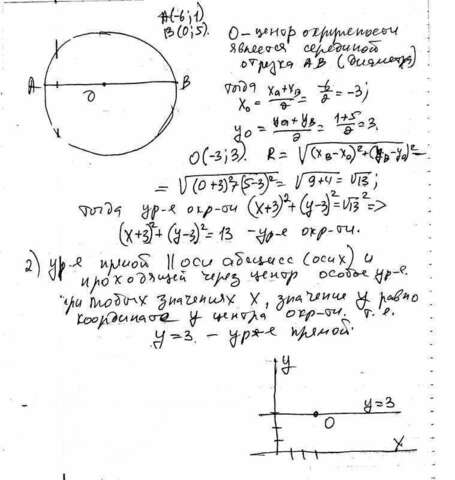 A(-6; 1)
B(0; 5).
O - центр окружности
является серединой
отрезка AB (диаметра)
A O B
тогда
x₀ = (xₐ+x_B)/2 = -6/2 = -3;
y₀ = (yₐ+y_B)/2 = (1+5)/2 = 3.
O(-3; 3). R = √((x_B-x₀)²+(y_B-y₀)²) =
= √((0+3)²+(5-3)²) = √(9+4) = √13;
тогда ур-е окр-ти (x+3)²+(y-3)²=√13² =>
(x+3)²+(y-3)²=13 - ур-е окр-ти.
2) ур-е прямой || оси абсцисс (оси x) и
проходящей через центр особое ур-е.
при любых значениях x, значение y равно
координате y центра окр-ти. т.е.
y=3 - ур-е прямой.
y
y=3
O
x